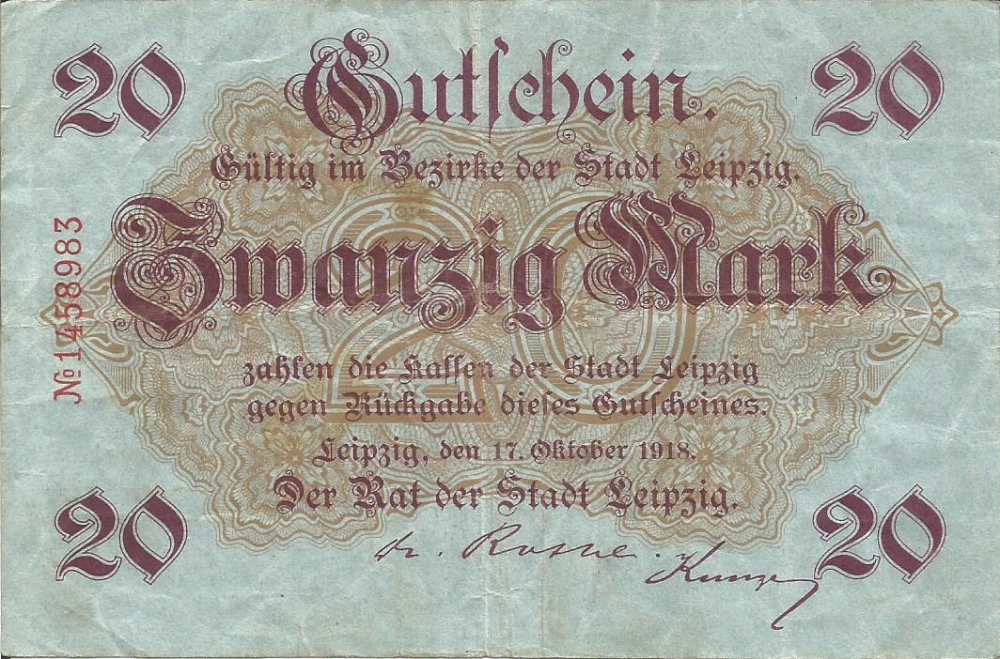 20 Gutschein. 20
Gültig im Bezirke der Stadt Leipzig.
Zwanzig Mark
№ 1458983
20
zahlen die Kassen der Stadt Leipzig
gegen Rückgabe dieses Gutscheines.
Leipzig, den 17. Oktober 1918.
Der Rat der Stadt Leipzig.
20 20
Dr. Rothe. Kunze